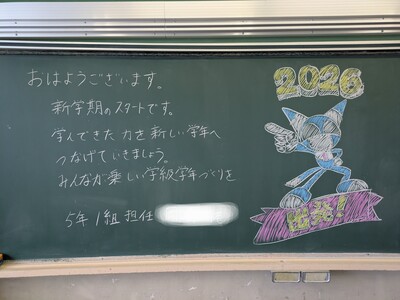 おはようございます。
新学期のスタートです。
学んできた力を新しい学年へ
つなげていきましょう。
みんなが楽しい学級学年づくりを
5年1組担任
2026
出発!